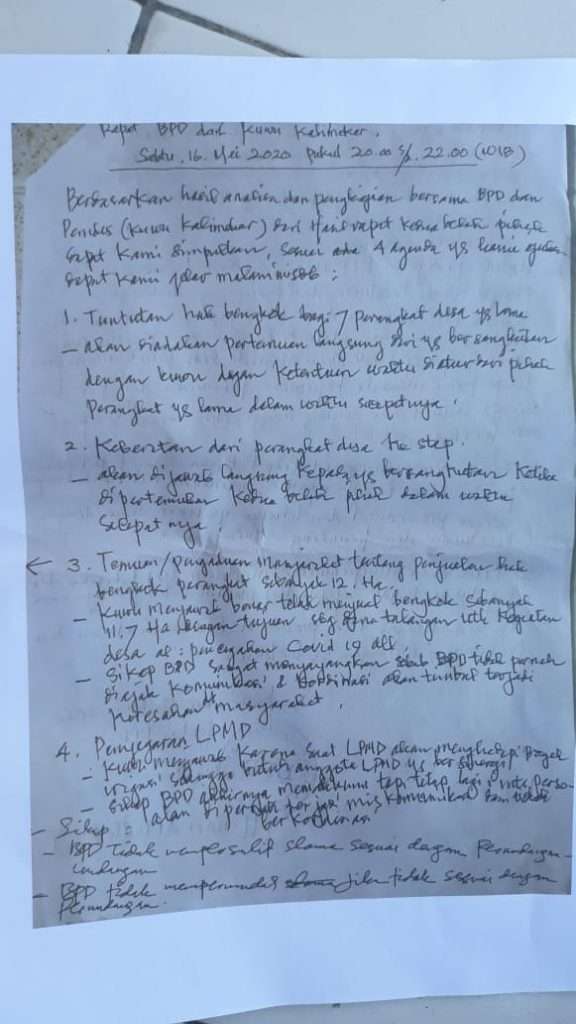 Rapat BPD dan Kuwu
Sabtu, 16 Mei 2020 pukul 20.00 s/d 22.00 (WIB)
Berdasarkan hasil dan pengkajian bersama BPD dan
Pemdes (kuwu dari Hasil rapat kedua belah pihak
dapat kami simpulkan, sesuai ada 4 agenda yg
dapat kami malam :
1. Tuntutan hak bengkok bagi 7 perangkat desa yg lama
- akan diadakan pertemuan langsung dari yg bersangkutan
dengan kuwu dgan Ketentuan waktu diatur dari pihak
Perangkat yg lama dalam waktu secepatnya.
2. Keberatan dari perangkat desa
- akan dijawab langsung kepada yg bersangkutan ketika
dipertemukan kedua belah pihak dalam waktu
secepatnya.
3. Temuan/pengaduan masyarakat tentang penjualan hak
bengkok perangkat sebanyak 12 Ha
- Kuwu menjawab benar telah menjual bengkok sebanyak
11.7 Ha dengan tujuan sbg dana talangan utk kegiatan
desa al : pencegahan Covid 19 dll.
- Sikap BPD sangat menyayangkan sbab BPD tidak pernah
diajak komunikasi & koordinasi akan timbul terjadi
keresahan masyarakat.
4. Penyegaran LPMD
- Kuwu menjawab karena saat LPMD akan menghadapi
sehingga butuh anggota LPMD yg bersinergi
- Sikap BPD akhirnya memaklumi tapi tetap lagi
akan terjadi mis komunikasi dan tidak
berkoordinasi
- Sikap :
- BPD tidak mempersulit selama sesuai dengan Perundangan-
undangan
- BPD tidak mempermudah jika tidak sesuai dengan
Perundangan.